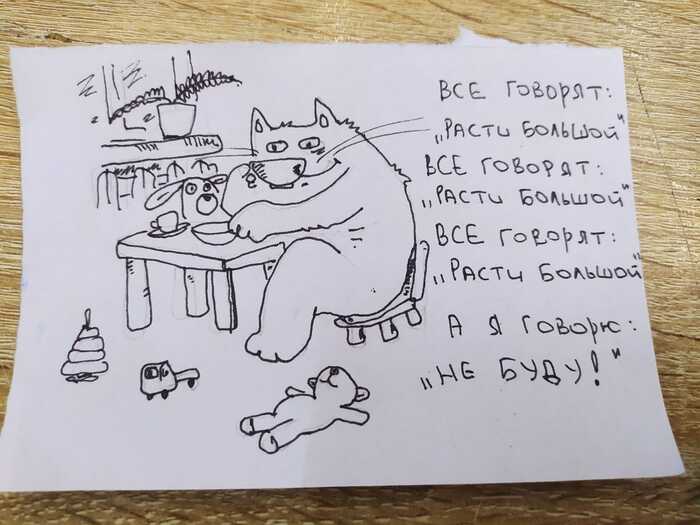 ВСЕ ГОВОРЯТ:
„РАСТИ БОЛЬШОЙ"
ВСЕ ГОВОРЯТ:
„РАСТИ БОЛЬШОЙ"
ВСЕ ГОВОРЯТ:
„РАСТИ БОЛЬШОЙ"
А Я ГОВОРЮ:
„НЕ БУДУ!"